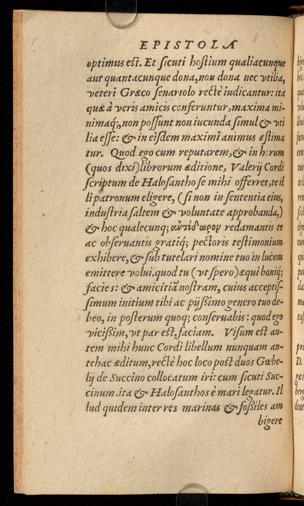 EPISTOLA
optimus est. Et sicuti hostium qualiacunque
aut quantacunque dona, non dona nec vtilia,
veteri Græco senariolo rectè iudicantur: ita
quæ à veris amicis conferuntur, maxima mi-
nimaq;, non possunt non iucunda simul & vti
lia esse: & in eisdem maximi animus æstima
tur. Quod ego cum reputarem, & in horum
(quos dixi) librorum æditione, Valerij Cordi
scriptum de Halosantho se mihi offerret, te il
li patronum eligere, (si non in sententia eius,
industria saltem & voluntate approbanda,)
& hoc qualecunq; redamantis te
ac obseruantis gratiq; pectoris testimonium
exhibere, & sub tutelari nomine tuo in lucem
emittere volui. quod tu (vt spero) æqui boniq;
facies: & amicitiã nostram, cuius acceptis-
simum initium tibi ac pijssimo genero tuo de-
beo, in posterum quoq; conseruabis: quod ego
vicißim, vt par est, faciam. Visum est au-
tem mihi hunc Cordi libellum nunquam an-
tehac æditum, rectè hoc loco post duos Gœbe-
lij de Succino collocatum iri: cum sicuti Suc-
cinum, ita & Halosanthos è mari legatur. Il
lud quidem inter res marinas & foßiles am
bigere